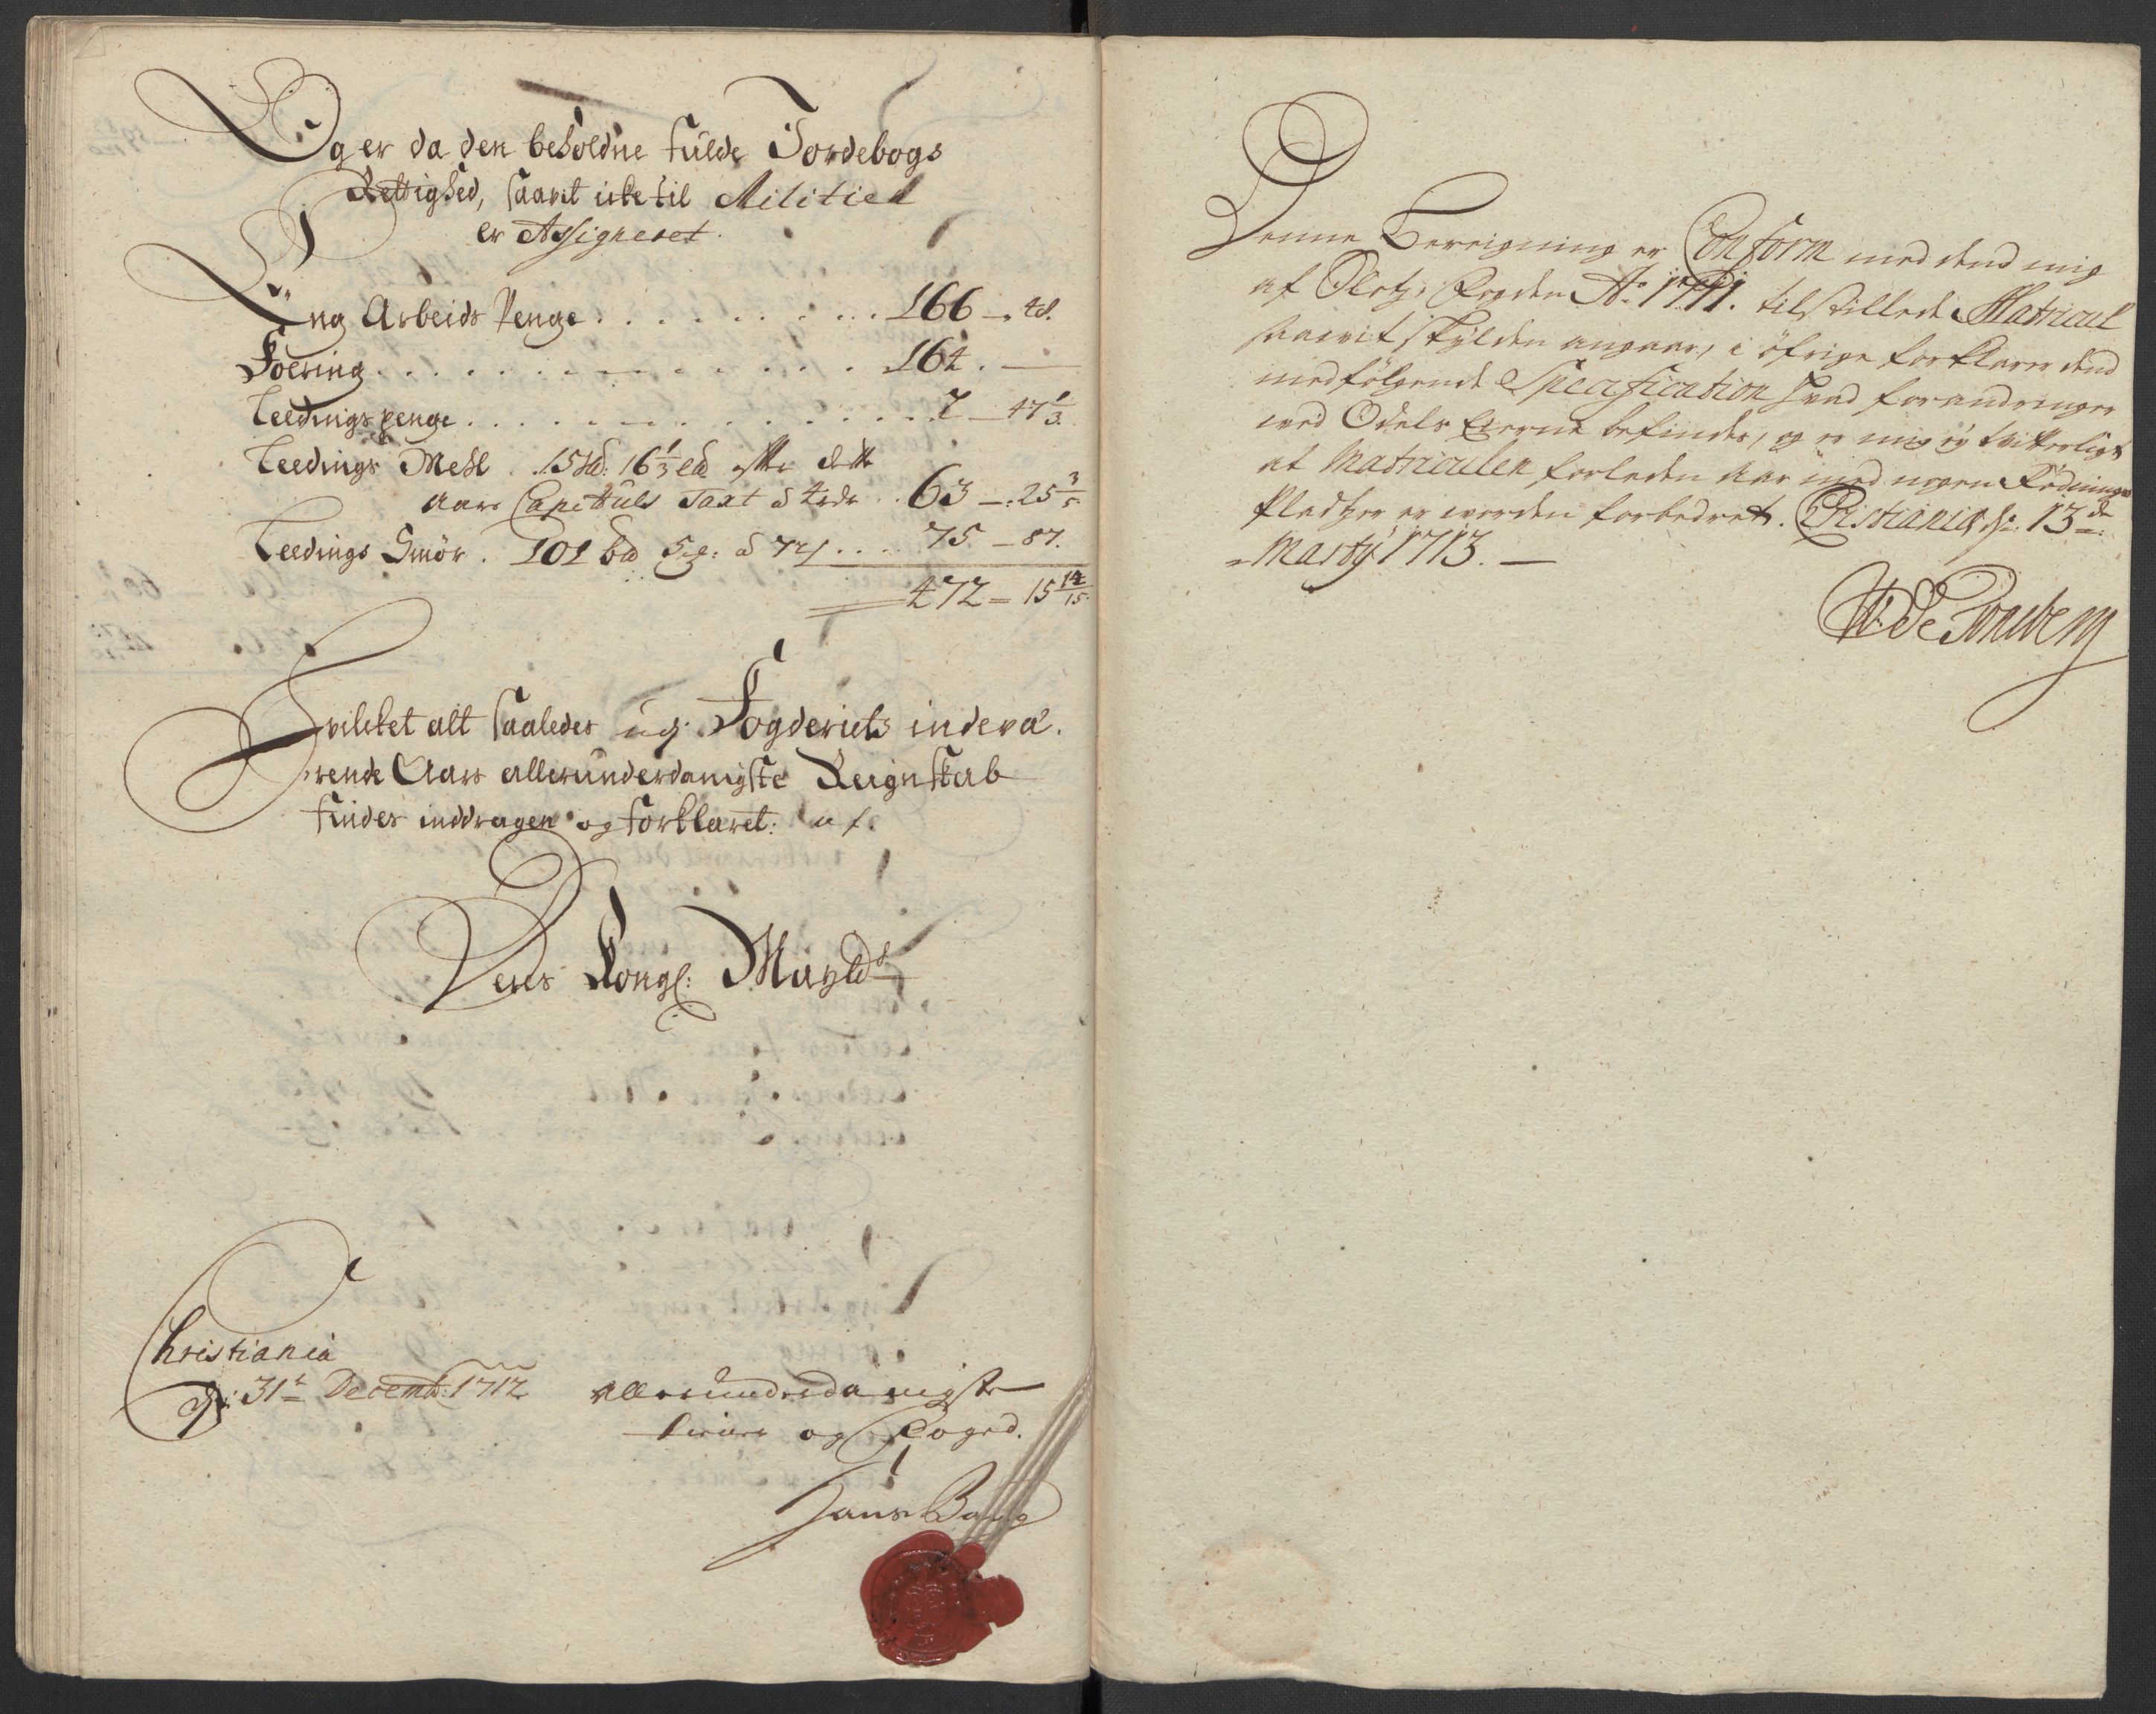 Og er da den beholdne fulde Jordebogs
Rettighed, saavit icke til Militien
er Assigneret.
Eng Arbeids Penge . . . . . . . . . 166 – „ 48.
Foering . . . . . . . . . . . . . . . . 164. —
Leedings penge . . . . . . . . . . . . . 2 – 47 1/3.
Leedings Mehl . 15 Sld: 16 1/3 Lld efter dette
Aars Capittuls Taxt à 4 rdr . . 63 – „ 25 3/5
Leedings Smör . 101 bd 5 : à 72 . . . 75 – 87.
472 – 15 14/15.
Hvilcket alt saaledes udj Fogderiets indevæ-
rende Aars allerunderdanigste Reignskab
findes inddragen og forklaret: af.
Deres Kongl: Mayts
Christiania
dr: 31te Decemb: 1712
allerunderdanigste
tiener og Foged.
Hans Bang
Denne Bereigning er Conform med dend mig
af Fogden Ao 1711. tilstillede Matricul
saavit skylden angaar, i öfrige forklarer dend
medfölgende Specification hvad forandringer
ved Odels Eierne befindes, og er mig ey vitterligt
at Matriculen forleden Aar med nogen Rödnings
Pladtzer er worden forbedret. Christiania dr. 13de
Marty 1713. —